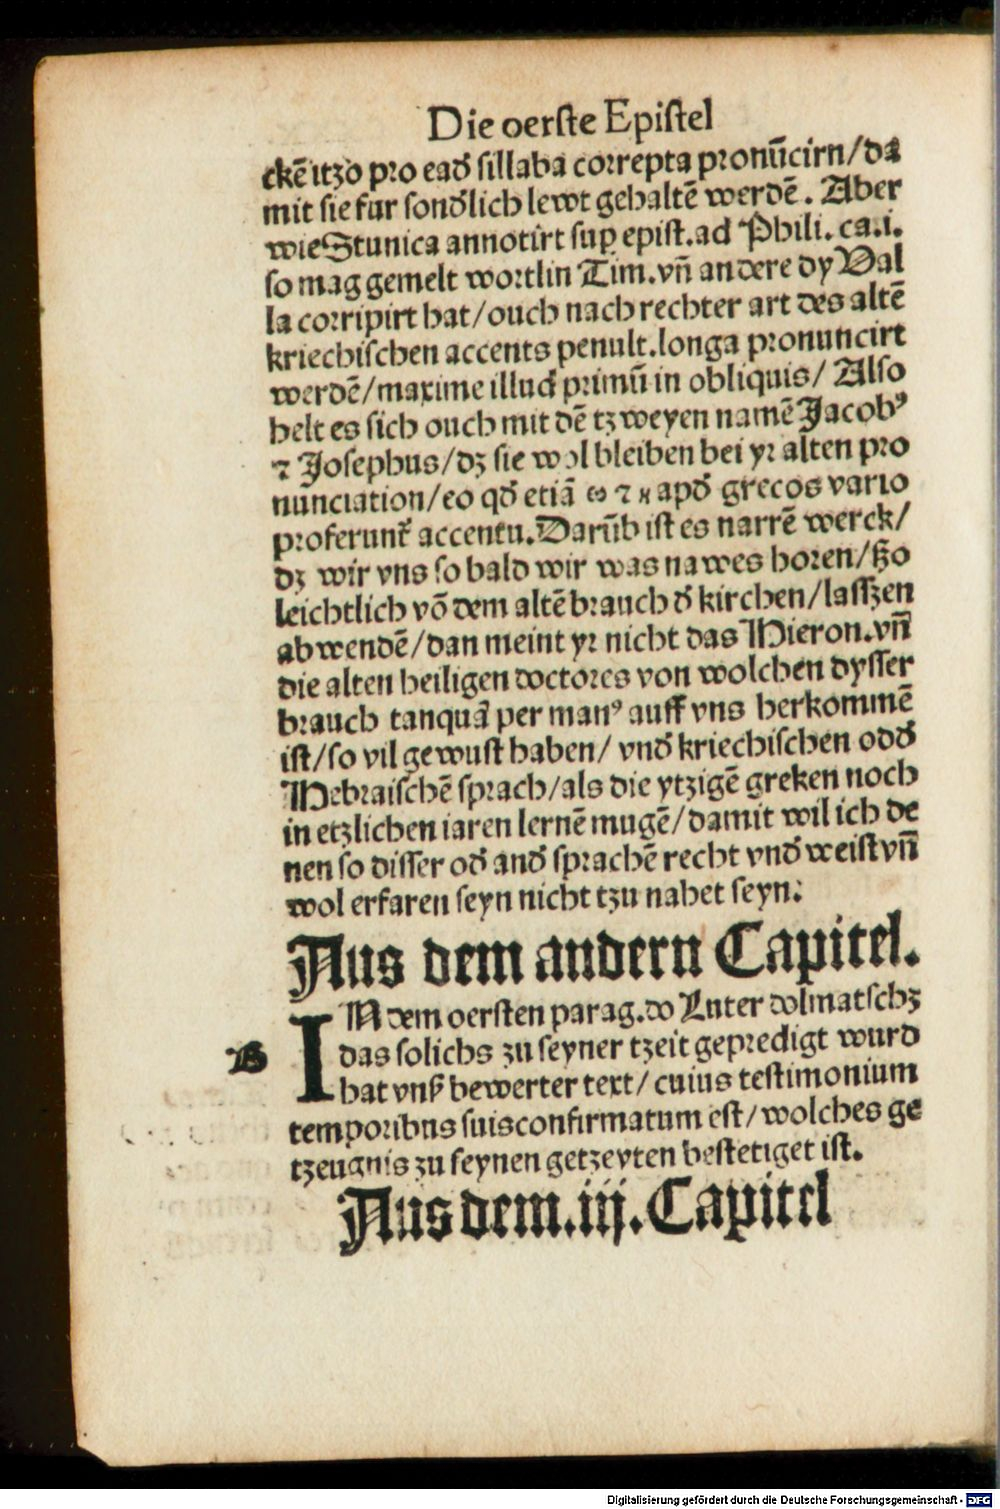 Die oerste Epistel
ckē itzo pro eađ sillaba correpta pronūcirn/da
mit sie fur sonđlich lewt gehaltē werdē. Aber
wie Stunica annotirt sup epist. ad Phili. ca. i.
so mag gemelt wortlin Tim. vn̄ andere dy Val
la corripirt hat/ouch nach rechter art des altē
kriechischen accents penult. longa pronuncirt
werdē/maxime illud primū in obliquis/ Also
helt es sich ouch mit dē tzweyen namē Jacobꝰ
⁊ Josephus/dz sie wol bleiben bei yr alten pro
nunciation/eo qđ etiā ω ⁊ η apđ grecos vario
proferunt᷑ accentu. Darūb ist es narrē werck/
dz wir vns so bald wir was nawes horen/ßo
leichtlich vō dem altē brauch đ kirchen/lasszen
abwendē/dan meint yr nicht das Hieron. vn̄
die alten heiligen doctores von wolchen dysser
brauch tanquā per manꝰ auff vns herkommē
ist/so vil gewust haben/ vnđ kriechischen odđ
Hebraischē sprach/als die ytzigē greken noch
in etzlichen iaren lernē mugē/damit wil ich de
nen so disser ođ anđ sprachē recht vnđweist vn̄
wol erfaren seyn nicht tzu nahet seyn.
Aus dem andern Capitel.
B
IN dem oersten parag. do Luter dolmatschz
das solichs zu seyner tzeit gepredigt wurd
hat vnß bewerter text/ cuius testimonium
temporibus suis confirmatum est/wolches ge
tzeugnis zu seynen getzeyten bestetiget ist.
Aus dem. iij. Capitel
Digitalisierung gefördert durch die Deutsche Forschungsgemeinschaft - DFG